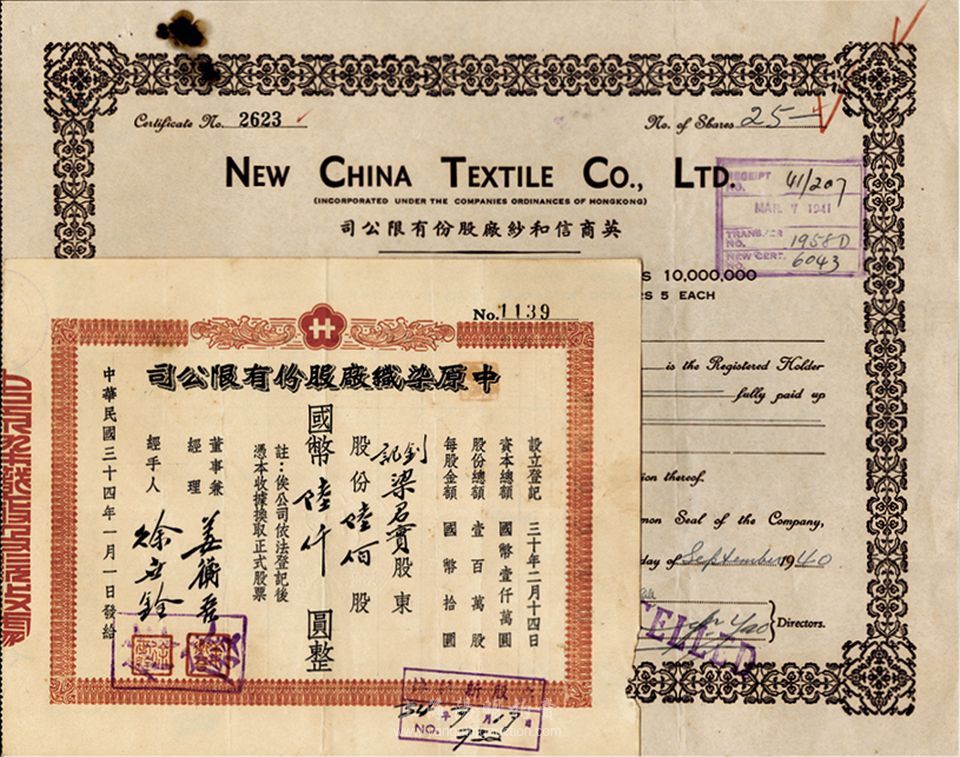 Certificate No. 2623
No. of Shares 25
NEW CHINA TEXTILE CO., LTD.
(INCORPORATED UNDER THE COMPANIES ORDINANCES OF HONGKONG)
司公限有份股廠紗和信商英
RECEIPT NO. 41/207
MAR 7 1941
TRANSFER NO. 1958D
NEW CERT. NO. 6043
S 10,000,000
RS 5 EACH
is the Registered Holder
fully paid up
ion thereof.
mon Seal of the Company,
day of September 1940
Directors.
CELLED
No. 1139
司公限有份股廠織染原中
設立登記 三十年二月十四日
資本總額 國幣壹仟萬圓
股份總額 壹百萬股
每股金額 國幣拾圓
劉梁君實股東
股份陸佰股
國幣陸仟圓整
註：俟公司依法登記後
憑本收據換取正式股票
董事兼
經理
經手人
中華民國三十四年一月一日發給
34年7月17日
NO.